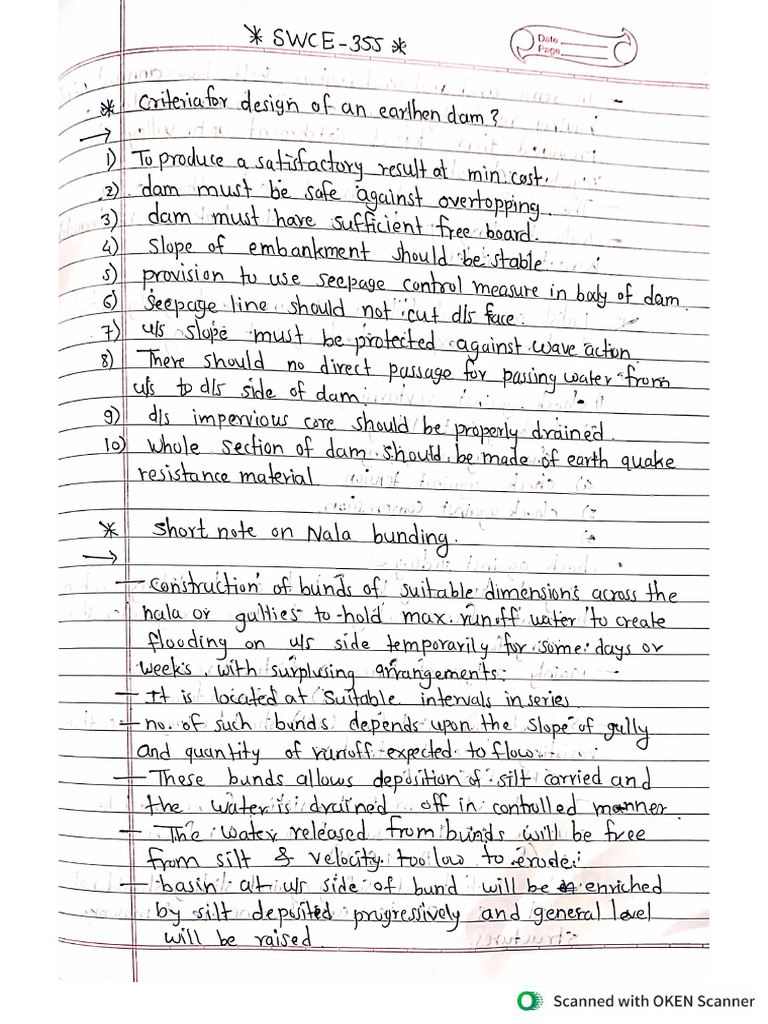 * SWCE-355 *
Date
Page
* Criteria for design of an earthen dam?
→
1) To produce a satisfactory result at min cost.
2) dam must be safe against overtopping.
3) dam must have sufficient free board.
4) Slope of embankment should be stable
5) provision to use seepage control measure in body of dam.
6) Seepage line should not cut d/s face.
7) u/s slope must be protected against wave action
8) There should no direct passage for passing water from
u/s to d/s side of dam.
9) d/s impervious core should be properly drained.
10) whole section of dam should be made of earth quake
resistance material
* Short note on Nala bunding.
→
— construction of bunds of suitable dimensions across the
nala or gullies to hold max. runoff water to create
flooding on u/s side temporarily for some days or
weeks, with surplusing arrangements.
— It is located at suitable intervals in series
— no. of such bunds depends upon the slope of gully
and quantity of runoff expected to flow.
— These bunds allows deposition of silt carried and
the water is drained off in controlled manner.
— The water released from bunds will be free
from silt & velocity too low to erode.
— basin at u/s side of bund will be enriched
by silt deposited progressively and general level
will be raised.
Scanned with OKEN Scanner